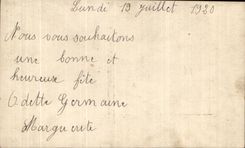 Lundi 19 juillet 1920
Nous vous souhaitons
une bonne et
heureuse fête
Odette Germaine
Marguerite